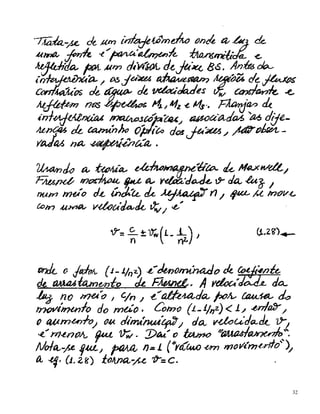 Trata-se de um interferômetro onde a luz de
uma fonte é parcialmente transmitida e
refletida por um divisor de feixe BS. Antes da
interferência, os feixes atravessam regiões de fluxos
contrários de água de velocidades Vw constante e
refletem nos espelhos M1, M2 e M3. Franjas de
interferências macroscópicas, associadas às dife-
renças de caminho óptico dos feixes, são obser-
vadas na experiência.
Usando a teoria eletromagnética de Maxwell,
Fresnel mostrou que a velocidade v da luz,
num meio de índice de refração n, que se move
com uma velocidade Vw, é
v = c/n ± Vw(1 - 1/n²), (1.28)
onde o fator (1-1/n²) é denominado de coefiente
de arrastamento de Fresnel. A velocidade da
luz no meio, c/n, é alterada por causa do
movimento do meio. Como (1-1/n²) < 1, então,
o aumento, ou diminuição, da velocidade v,
é menor que Vw. Daí o termo "arrastamento".
Nota-se que, para n=1 ("vácuo em movimento"),
a eq. (1.28) torna-se v=c.
32